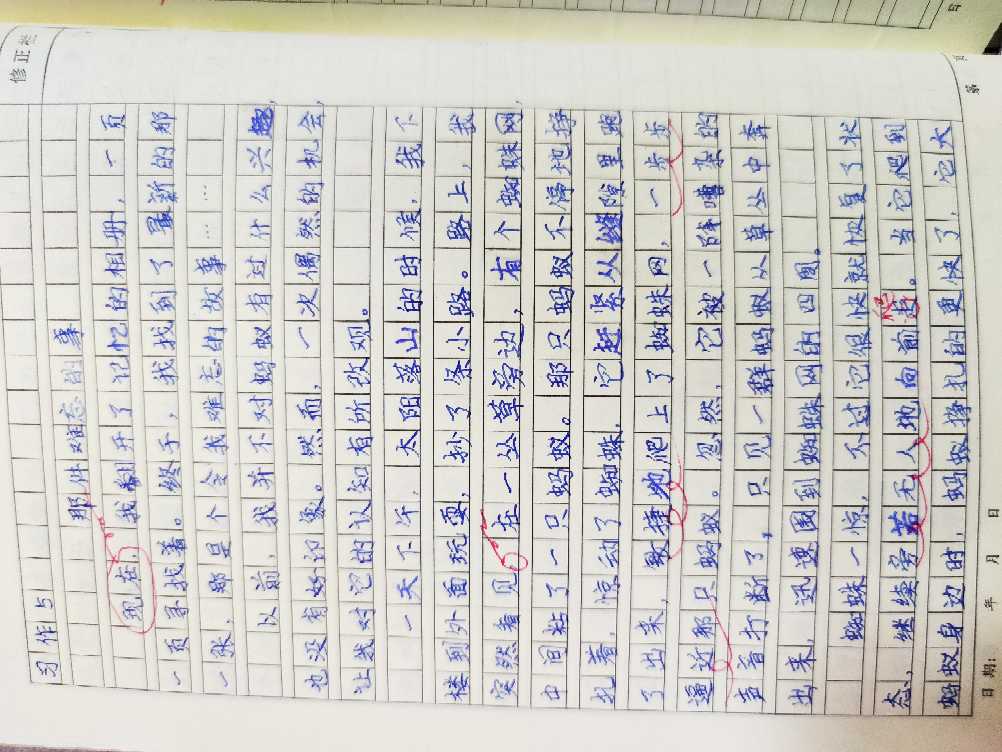 修正栏
习作5
那件难忘的事
现在，我翻开了记忆的相册，一页
一页寻找着。终于，我找到了最新的那
一张，那是个令我难忘的故事……
以前，我并不对蚂蚁有过什么兴趣，
也没有好印象。然而，一次偶然的机会，
让我对它的认知有所改观。
一天下午，太阳落山的时候，我下
楼到外面玩耍，抄了条小路。路上，我
突然看见在一丛草旁边，有个蜘蛛网，
中间粘了一只蚂蚁。那只蚂蚁不停地挣
扎着，惊动了蜘蛛，它赶紧从缝隙里跑
了出来，敏捷地爬上了蜘蛛网，一步步
逼近那只蚂蚁。忽然，它被一阵嘈杂的
声音打断了，只见一群蚂蚁从草丛中奔
出来，迅速围到蜘蛛网的四周。
蜘蛛一惊，不过它很快就恢复了状
态，继续旁若无人地向前爬。当它爬到
蚂蚁身边时，蚂蚁挣扎的更快了，它大
日期： 年 月 日